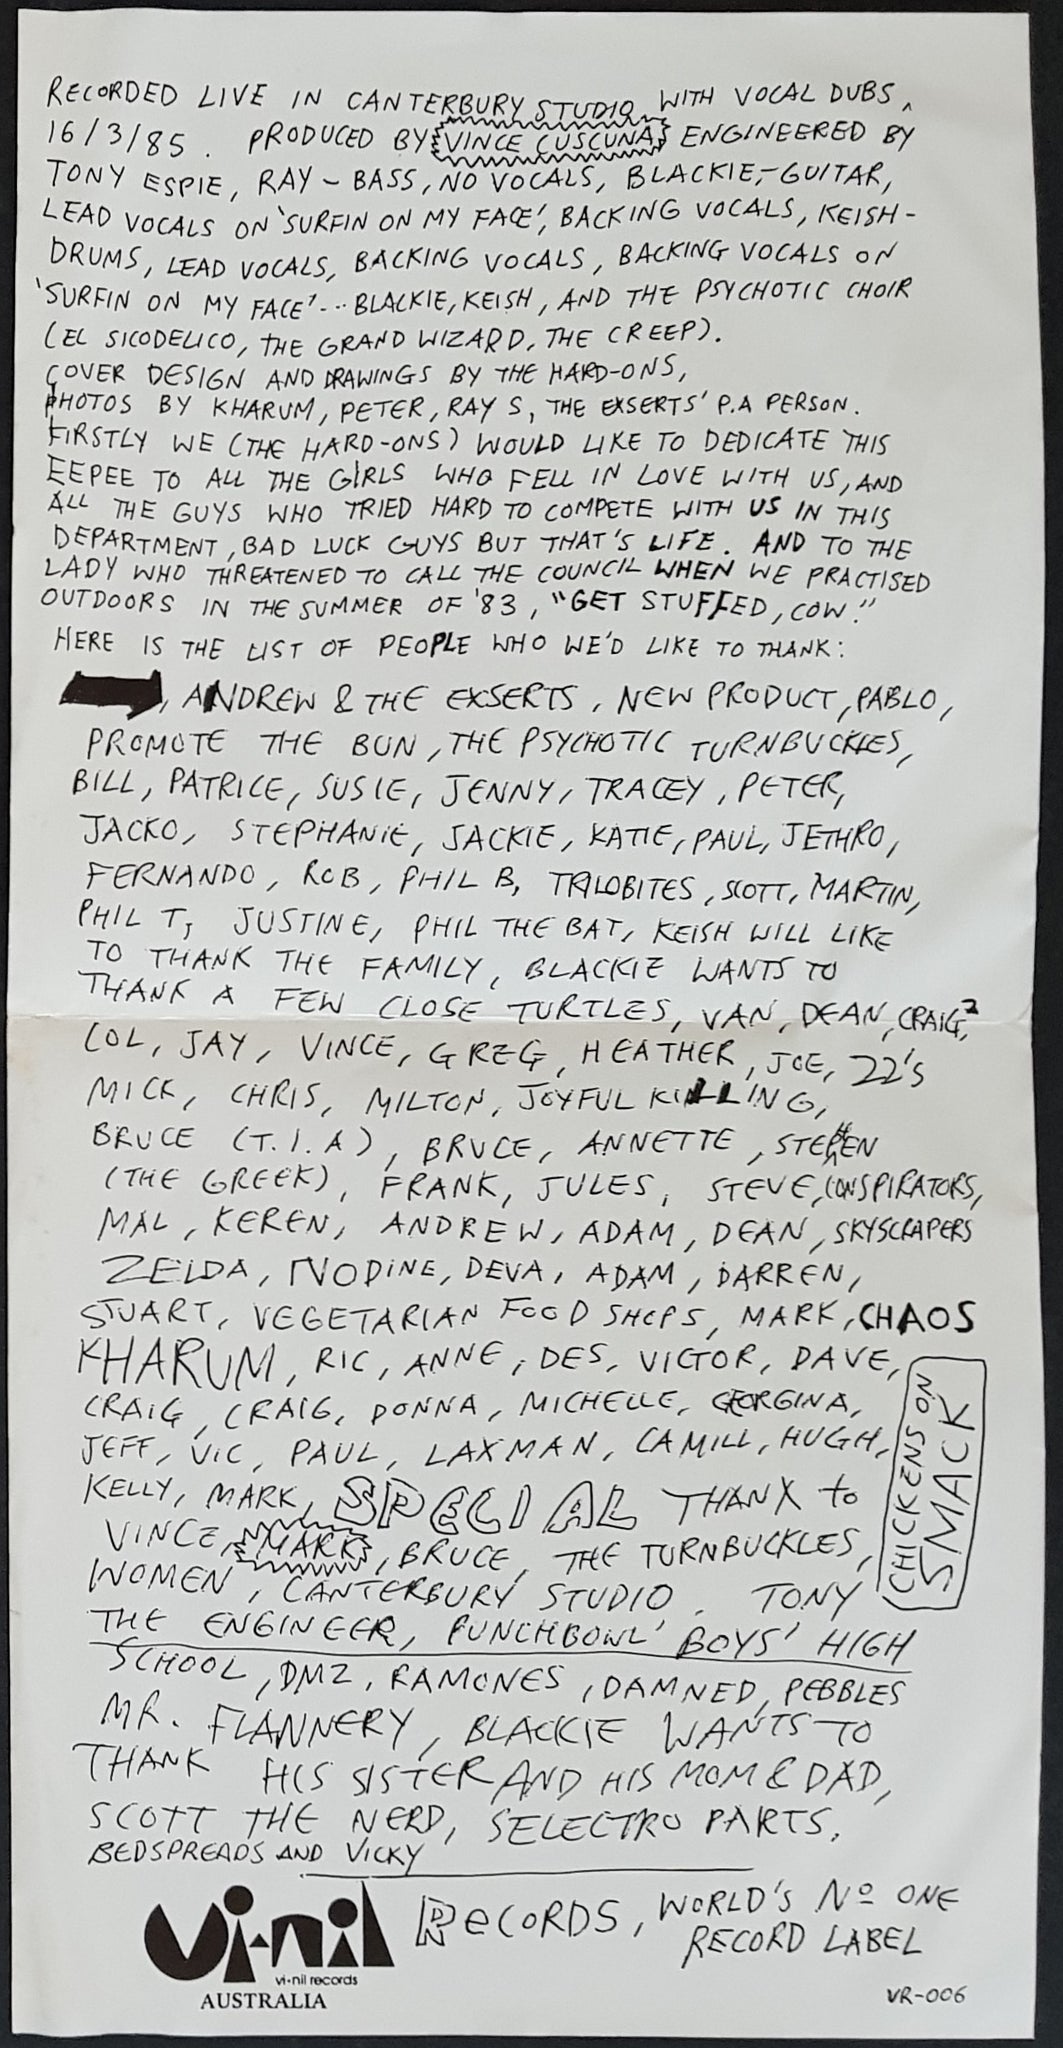 RECORDED LIVE IN CANTERBURY STUDIO WITH VOCAL DUBS,
16/3/85. PRODUCED BY VINCE CUSCUNA ENGINEERED BY
TONY ESPIE, RAY - BASS, NO VOCALS, BLACKIE,-GUITAR,
LEAD VOCALS ON 'SURFIN ON MY FACE', BACKING VOCALS, KEISH -
DRUMS, LEAD VOCALS, BACKING VOCALS, BACKING VOCALS ON
'SURFIN ON MY FACE'... BLACKIE, KEISH, AND THE PSYCHOTIC CHOIR
(EL SICODELICO, THE GRAND WIZARD, THE CREEP).
COVER DESIGN AND DRAWINGS BY THE HARD-ONS,
PHOTOS BY KHARUM, PETER, RAY S, THE EXSERTS' P.A PERSON.
FIRSTLY WE (THE HARD-ONS) WOULD LIKE TO DEDICATE THIS
EEPEE TO ALL THE GIRLS WHO FELL IN LOVE WITH US, AND
ALL THE GUYS WHO TRIED HARD TO COMPETE WITH US IN THIS
DEPARTMENT, BAD LUCK GUYS BUT THAT'S LIFE. AND TO THE
LADY WHO THREATENED TO CALL THE COUNCIL WHEN WE PRACTISED
OUTDOORS IN THE SUMMER OF '83, "GET STUFFED, COW."
HERE IS THE LIST OF PEOPLE WHO WE'D LIKE TO THANK:
, ANDREW & THE EXSERTS, NEW PRODUCT, PABLO,
PROMOTE THE BUN, THE PSYCHOTIC TURNBUCKLES,
BILL, PATRICE, SUSIE, JENNY, TRACEY, PETER,
JACKO, STEPHANIE, JACKIE, KATIE, PAUL, JETHRO,
FERNANDO, ROB, PHIL B, TRILOBITES, SCOTT, MARTIN,
PHIL T, JUSTINE, PHIL THE BAT, KEISH WILL LIKE
TO THANK THE FAMILY, BLACKIE WANTS TO
THANK A FEW CLOSE TURTLES, VAN, DEAN, CRAIG²,
COL, JAY, VINCE, GREG, HEATHER, JOE, 22'S
MICK, CHRIS, MILTON, JOYFUL KILLING,
BRUCE (T.I.A), BRUCE, ANNETTE, STEPHEN
(THE GREEK), FRANK, JULES, STEVE, CONSPIRATORS,
MAL, KEREN, ANDREW, ADAM, DEAN, SKYSCRAPERS
ZELDA, NODINE, DEVA, ADAM, DARREN,
STUART, VEGETARIAN FOOD SHOPS, MARK, CHAOS
KHARUM, RIC, ANNE, DES, VICTOR, DAVE,
CRAIG, CRAIG, DONNA, MICHELLE, GEORGINA,
JEFF, VIC, PAUL, LAXMAN, CAMILL, HUGH,
CHICKENS ON
SMACK
KELLY, MARK, SPECIAL THANX to
VINCE, MARK, BRUCE, THE TURNBUCKLES,
WOMEN, CANTERBURY STUDIO. TONY
THE ENGINEER, PUNCHBOWL' BOYS' HIGH
SCHOOL, DMZ, RAMONES, DAMNED, PEBBLES
MR. FLANNERY, BLACKIE WANTS TO
THANK HIS SISTER AND HIS MOM & DAD,
SCOTT THE NERD, SELECTRO PARTS.
BEDSPREADS AND VICKY
vi-nil RECORDS, WORLD'S Nº ONE
RECORD LABEL
vi-nil records
AUSTRALIA
VR-006